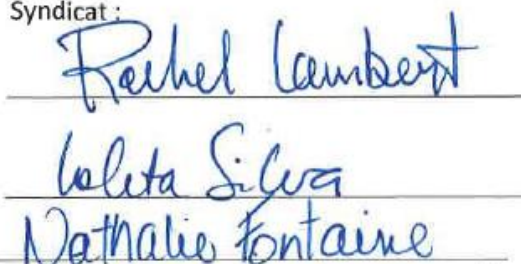 Syndicat :
Rachel Lambert
Lolita Silva
Nathalie Fontaine